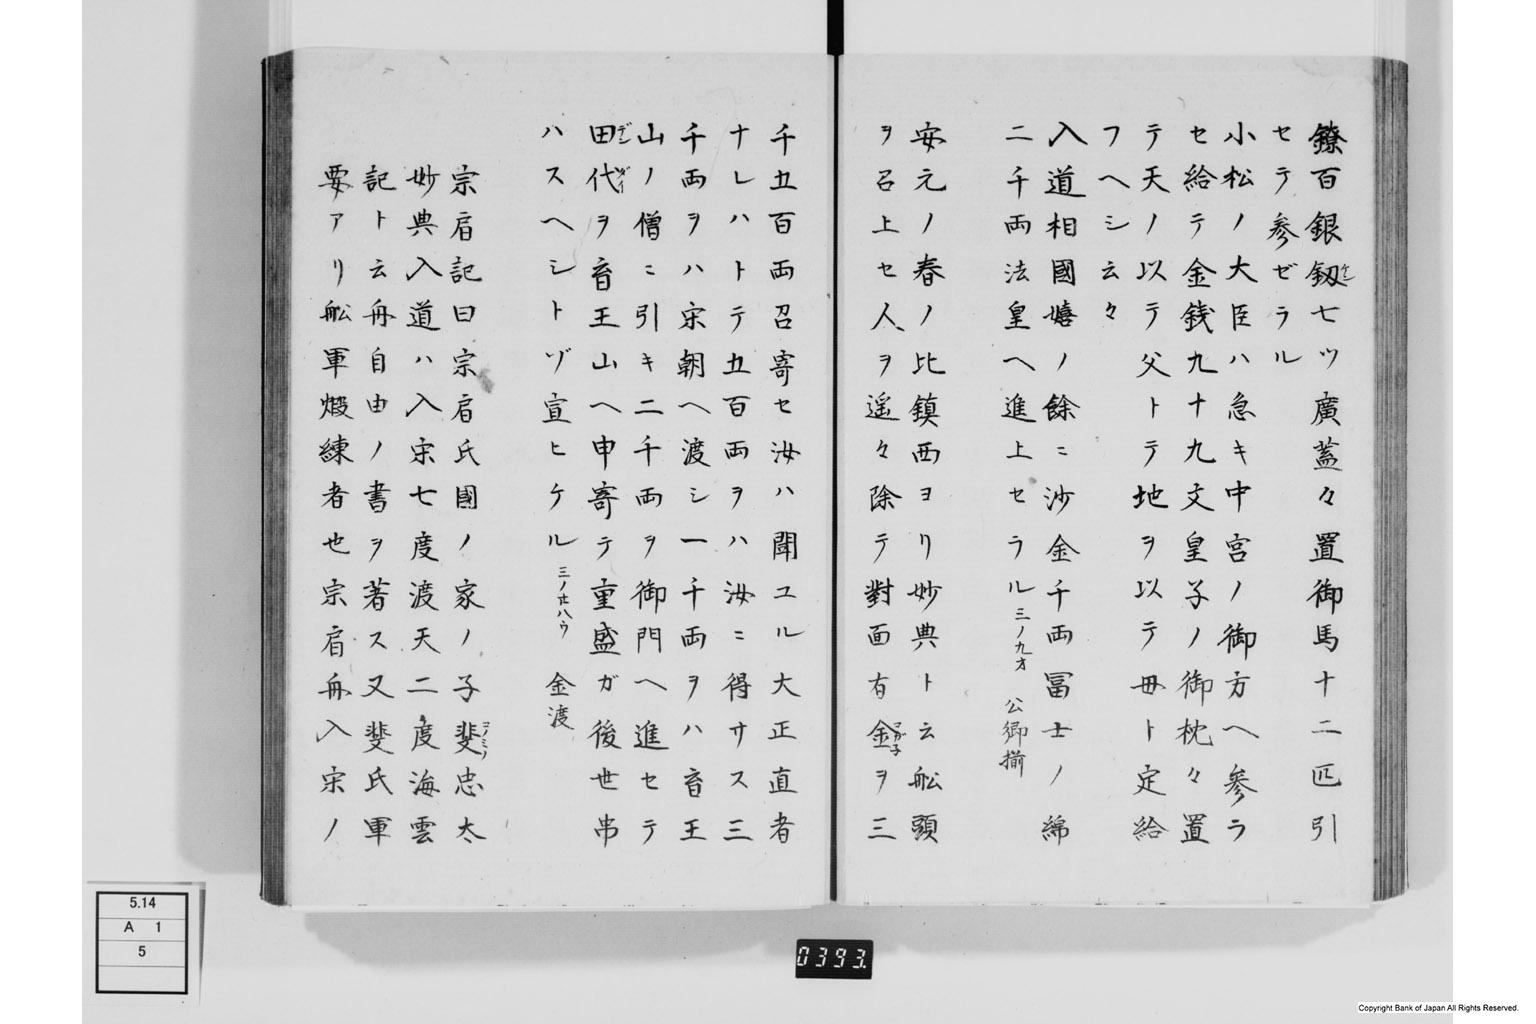 鐐百銀釼七ツ廣蓋々置御馬十二匹引
ケン
セテ参ゼラル
小松ノ大臣ハ急キ中宮ノ御方ヘ参ラ
セ給テ金銭九十九文皇子ノ御枕々置
テ天ノ以テ父トテ地ヲ以テ母ト定給
フヘシ云々
入道相國嬉ノ餘ニ沙金千両冨士ノ綿
二千両法皇ヘ進上セラル 三ノ九オ 公卿揃
安元ノ春ノ比鎮西ヨリ妙典ト云舩頭
ヲ召上セ人ヲ遥々除テ對面有金ヲ三
コガ子
千五百両召寄セ汝ハ聞ユル大正直者
ナレハトテ五百両ヲハ汝ニ得サス三
千両ヲハ宋朝ヘ渡シ一千両ヲハ育王
山ノ僧ニ引キ二千両ヲ御門ヘ進セテ
田代ヲ育王山ヘ申寄テ重盛ガ後世串
デン ダイ
ハスヘシトゾ宣ヒケル 三ノ廿八ウ 金渡
宗眉記曰宗眉氏國ノ家ノ子斐忠太
コノミノ
妙典入道ハ入宋七度渡天二度海雲
記ト云舟自由ノ書ヲ著ス又斐氏軍
要アリ舩軍煅練者也宗眉舟入宗ノ
5.14
A 1
5
0393
Copyright Bank of Japan All Rights Reserved.